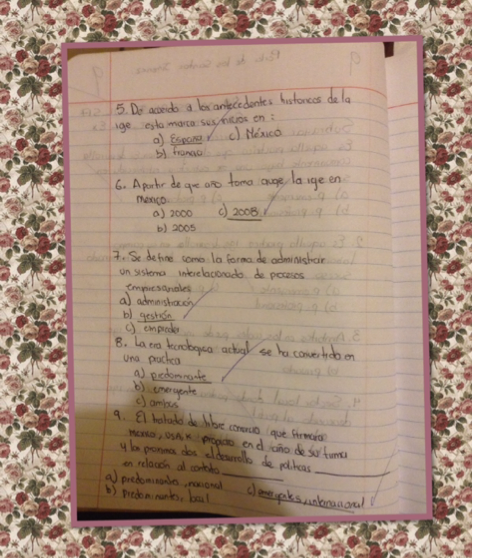 5. De acuerdo a los antecedentes historicos de la
ige esta marca sus inicios en :
a) España c) México
b) francia
6. A partir de que año toma auge la ige en
mexico.
a) 2000 c) 2008
b) 2005
7. Se define como la forma de administrar
un sistema interelacionado de procesos
empresariales
a) administración
b) gestión
c) emprender
8. La era tecnologica actual se ha convertido en
una practica
a) predominante
b) emergente
c) ambos
9. El tratado de libre comercio que firmaro
Mexico, USA, K propicio en el año de su firma
y los proximos dos el desarrollo de politicas
en relación al contexto
a) predominantes, nacional
b) predominantes, local c) emergentes, internacional